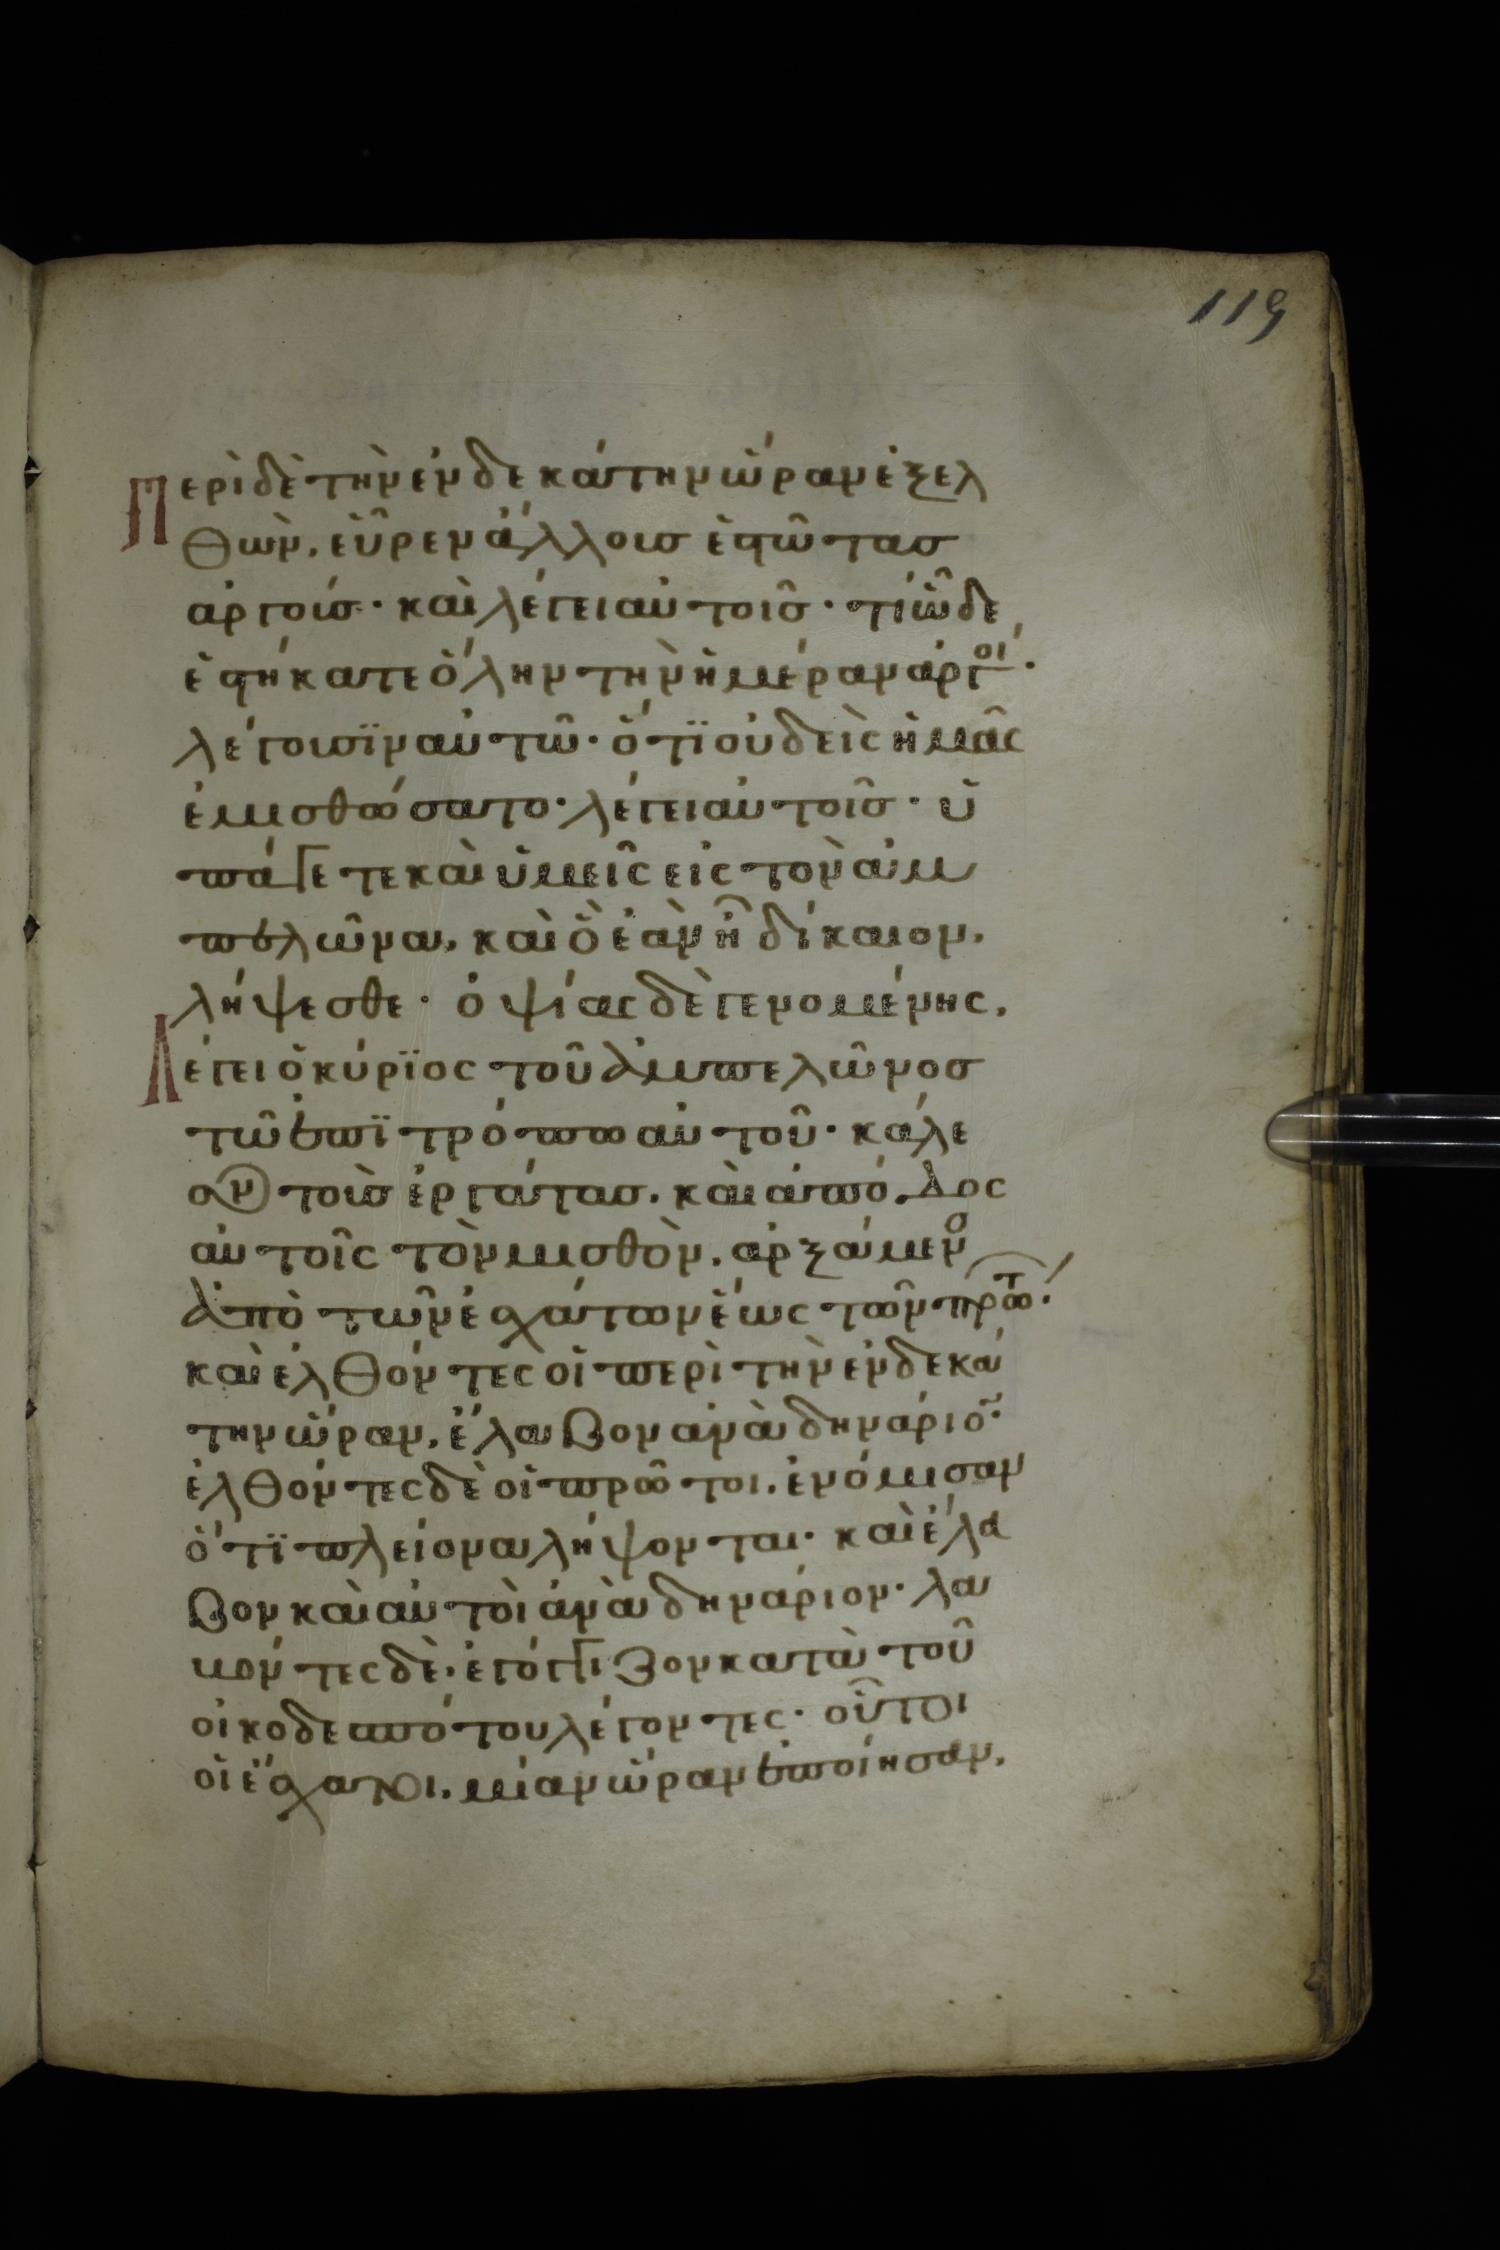 119
Περὶ δὲ τὴν ἑνδεκάτην ὥραν ἐξελ
θὼν, εὗρεν ἄλλους ἑστῶτας
ἀργούς· καὶ λέγει αὐτοῖς· τί ὧδε
ἑστήκατε ὅλην τὴν ἡμέραν ἀργοί·
λέγουσϊν αὐτῶ· ὅτϊ οὐδεὶς ἡμᾶς
ἐμισθώσατο· λέγει αὐτοῖς· ὑ
πάγετε καὶ ὑμεῖς εἰς τὸν ἀμ
πελῶνα, καὶ ὃ ἐὰν ἦ δίκαιον,
λήψεσθε· ὀψίας δὲ γενομένης,
Λέγει ὁ κύρϊος τοῦ ἀμπελῶνος
τῶ ἐπϊτρόπω αὐτοῦ· κάλε
σον τοὺς ἐργάτας, καὶ ἀπόδος
αὐτοῖς τὸν μισθὸν, ἀρξάμενο
ἀπὸ τῶν ἐσχάτων ἕως τῶν πρώτ·
καὶ ἐλθόντες οἱ περὶ τὴν ἑνδεκά
την ὥραν, ἔλαβον ἀνὰ δηνάριο·
ἐλθόντες δὲ οἱ πρῶτοι, ἐνόμισαν
ὅτϊ πλείονα λήψονται· καὶ ἔλα
βον καὶ αὐτοὶ ἀνὰ δηνάριον· λα
βόντες δὲ, ἐγόγγιζον κατὰ τοῦ
οἰκοδεσπότου λέγοντες· οὗτοι
οἱ ἔσχατοι, μίαν ὥραν ἐποίησαν,